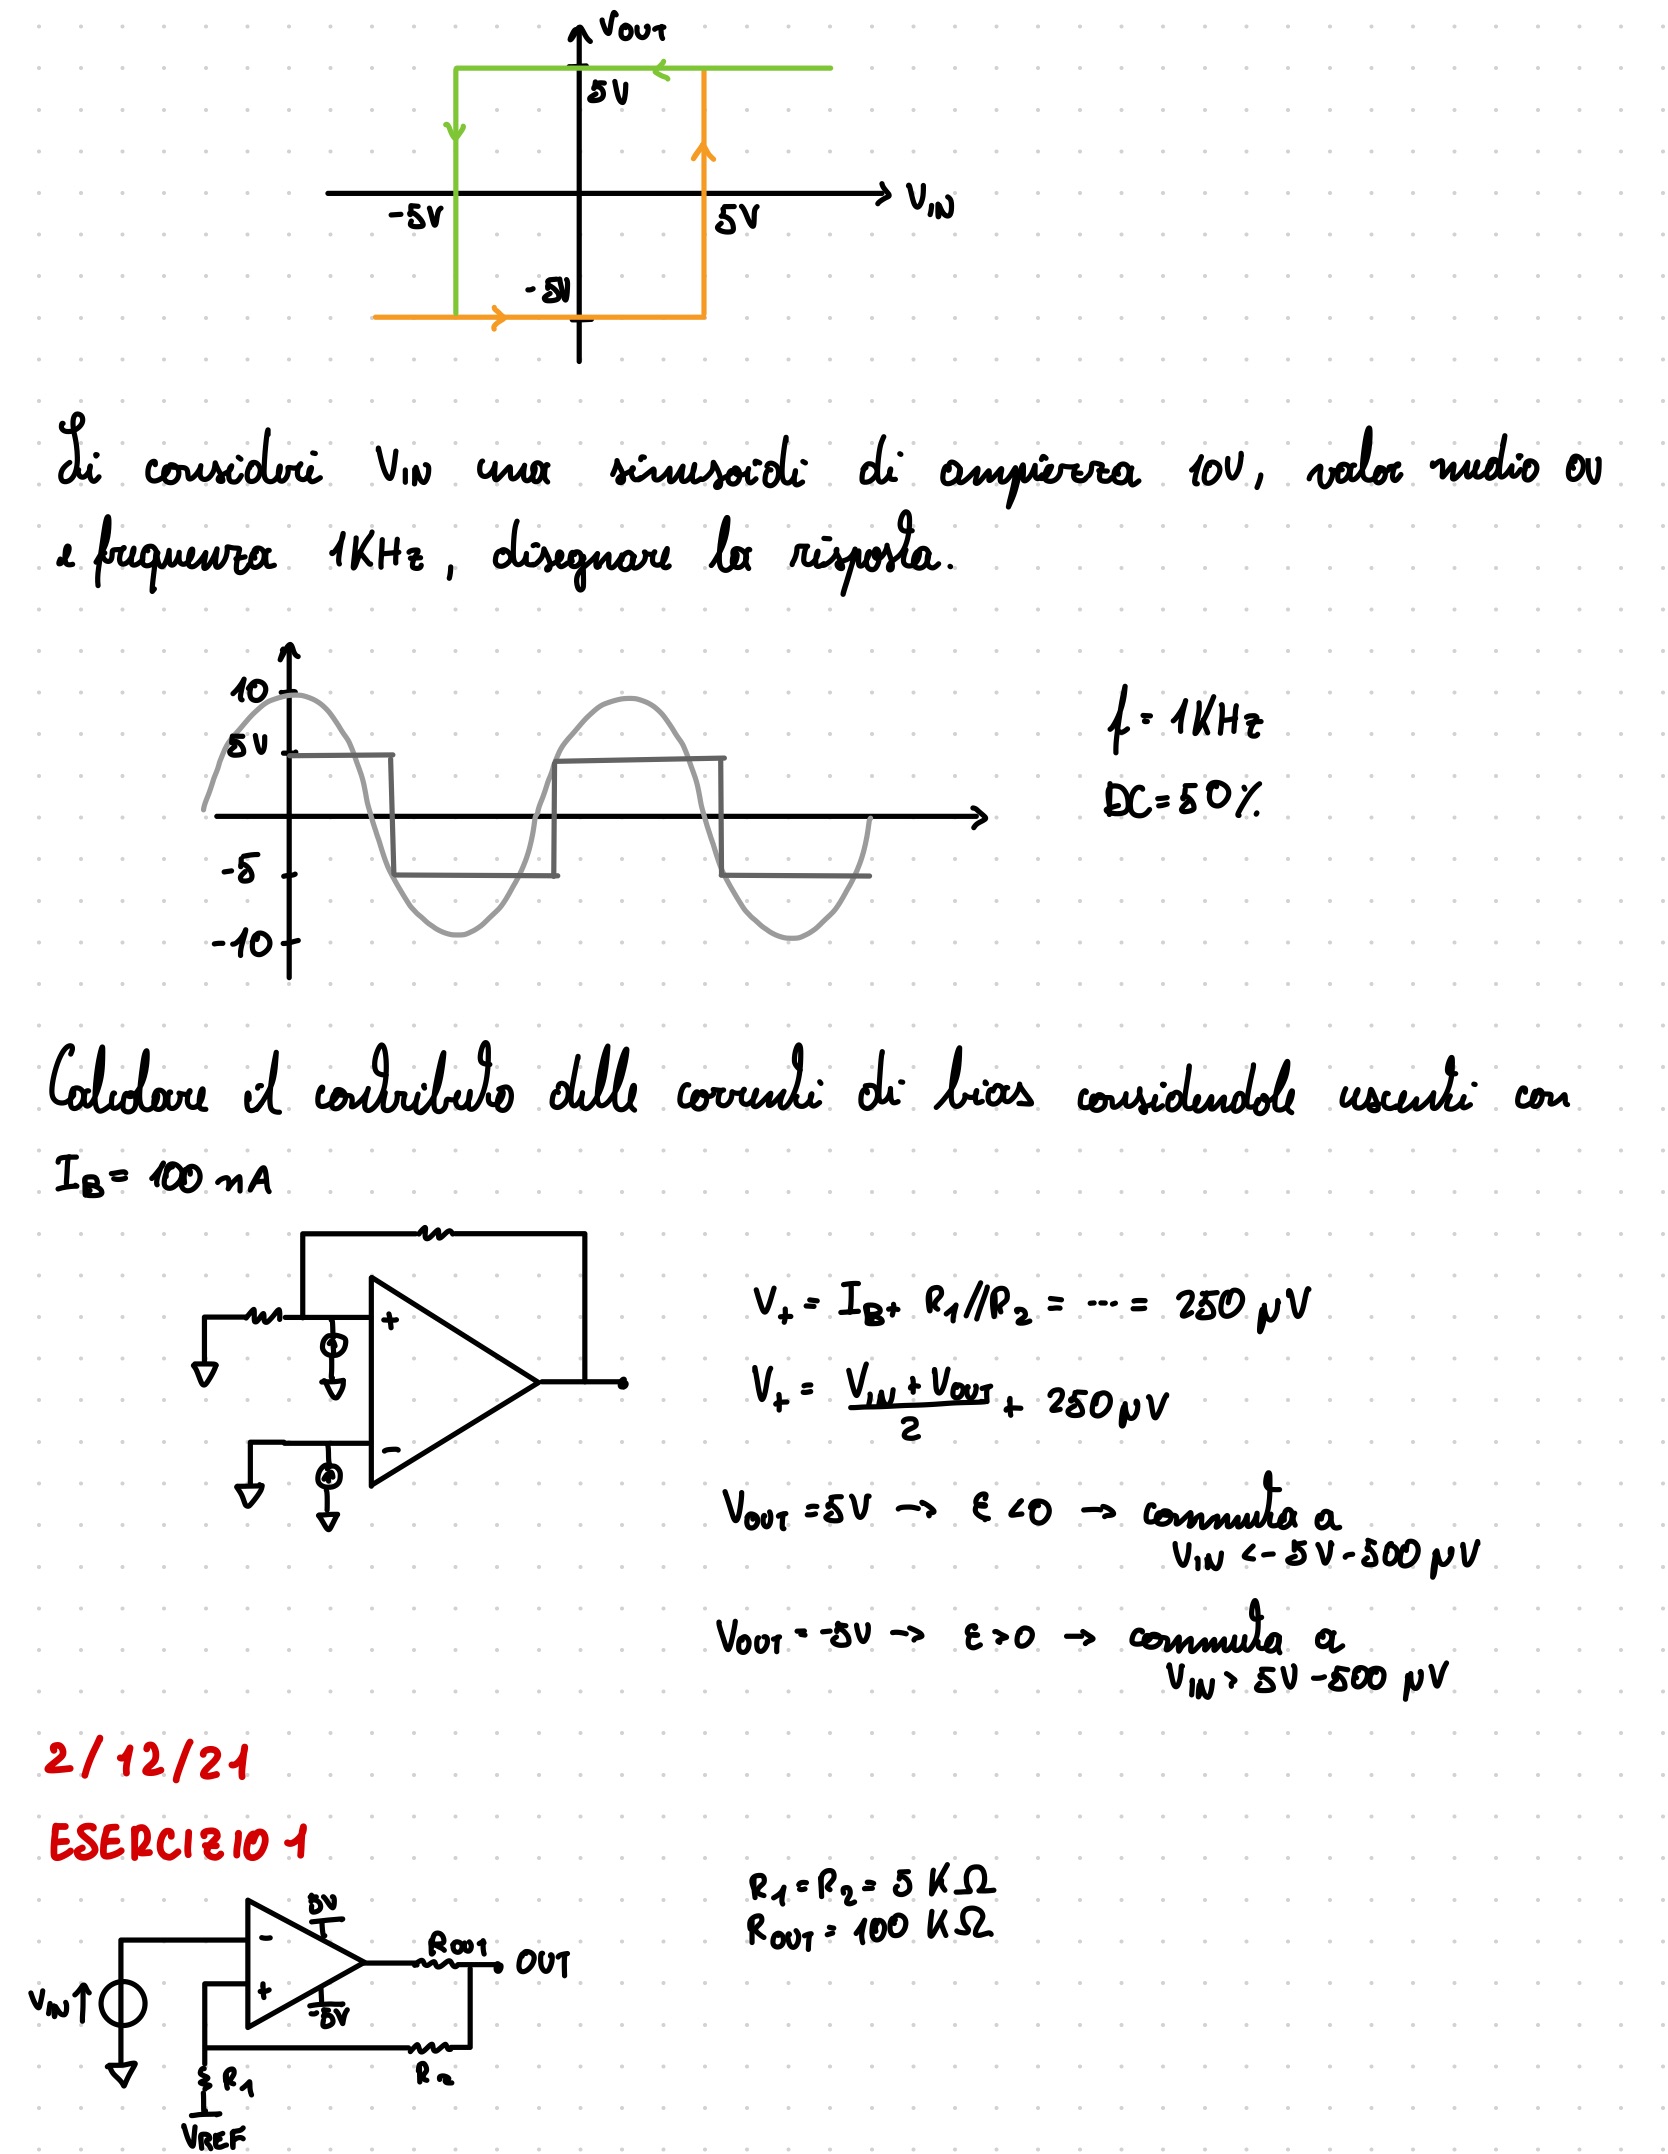 VOUT
5V
VIN
-5V
5V
-5V
Si consideri VIN una sinusoide di ampiezza 10V, valor medio 0V
e frequenza 1KHz, disegnare la risposta.
10
5V
f = 1KHz
DC = 50%
-5
-10
Calcolare il contributo delle correnti di bias considendole uscenti con
IB = 100 nA
V+ = IB+ R1//R2 = ... = 250 μV
+
V+ = (VIN + VOUT)/2 + 250 μV
-
VOUT = 5V → ε < 0 → commuta a
VIN < -5V - 500 μV
VOUT = -5V → ε > 0 → commuta a
VIN > 5V - 500 μV
2/12/21
ESERCIZIO 1
R1 = R2 = 5 KΩ
5V
ROUT = 100 KΩ
-
ROUT
OUT
VIN
+
-5V
R1
R2
VREF